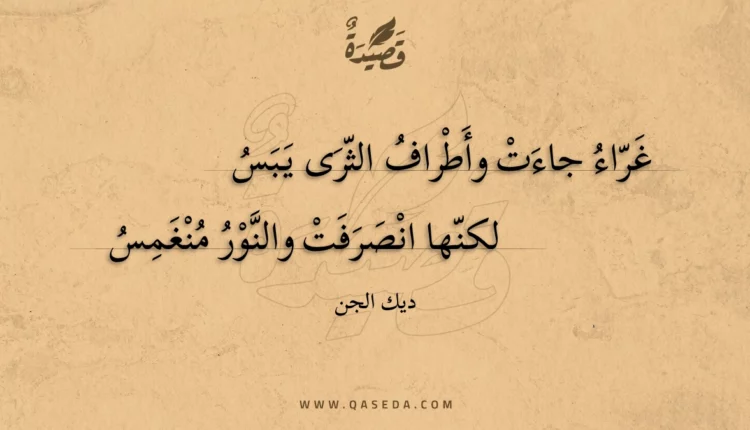 قَصِيدَةٌ
غَرّاءُ جاءَتْ وأَطْرافُ الثّرَى يَبَسُ
لكنّها انْصَرَفَتْ والنَّوْرُ مُنْغَمِسُ
ديك الجن
WWW.QASEDA.COM